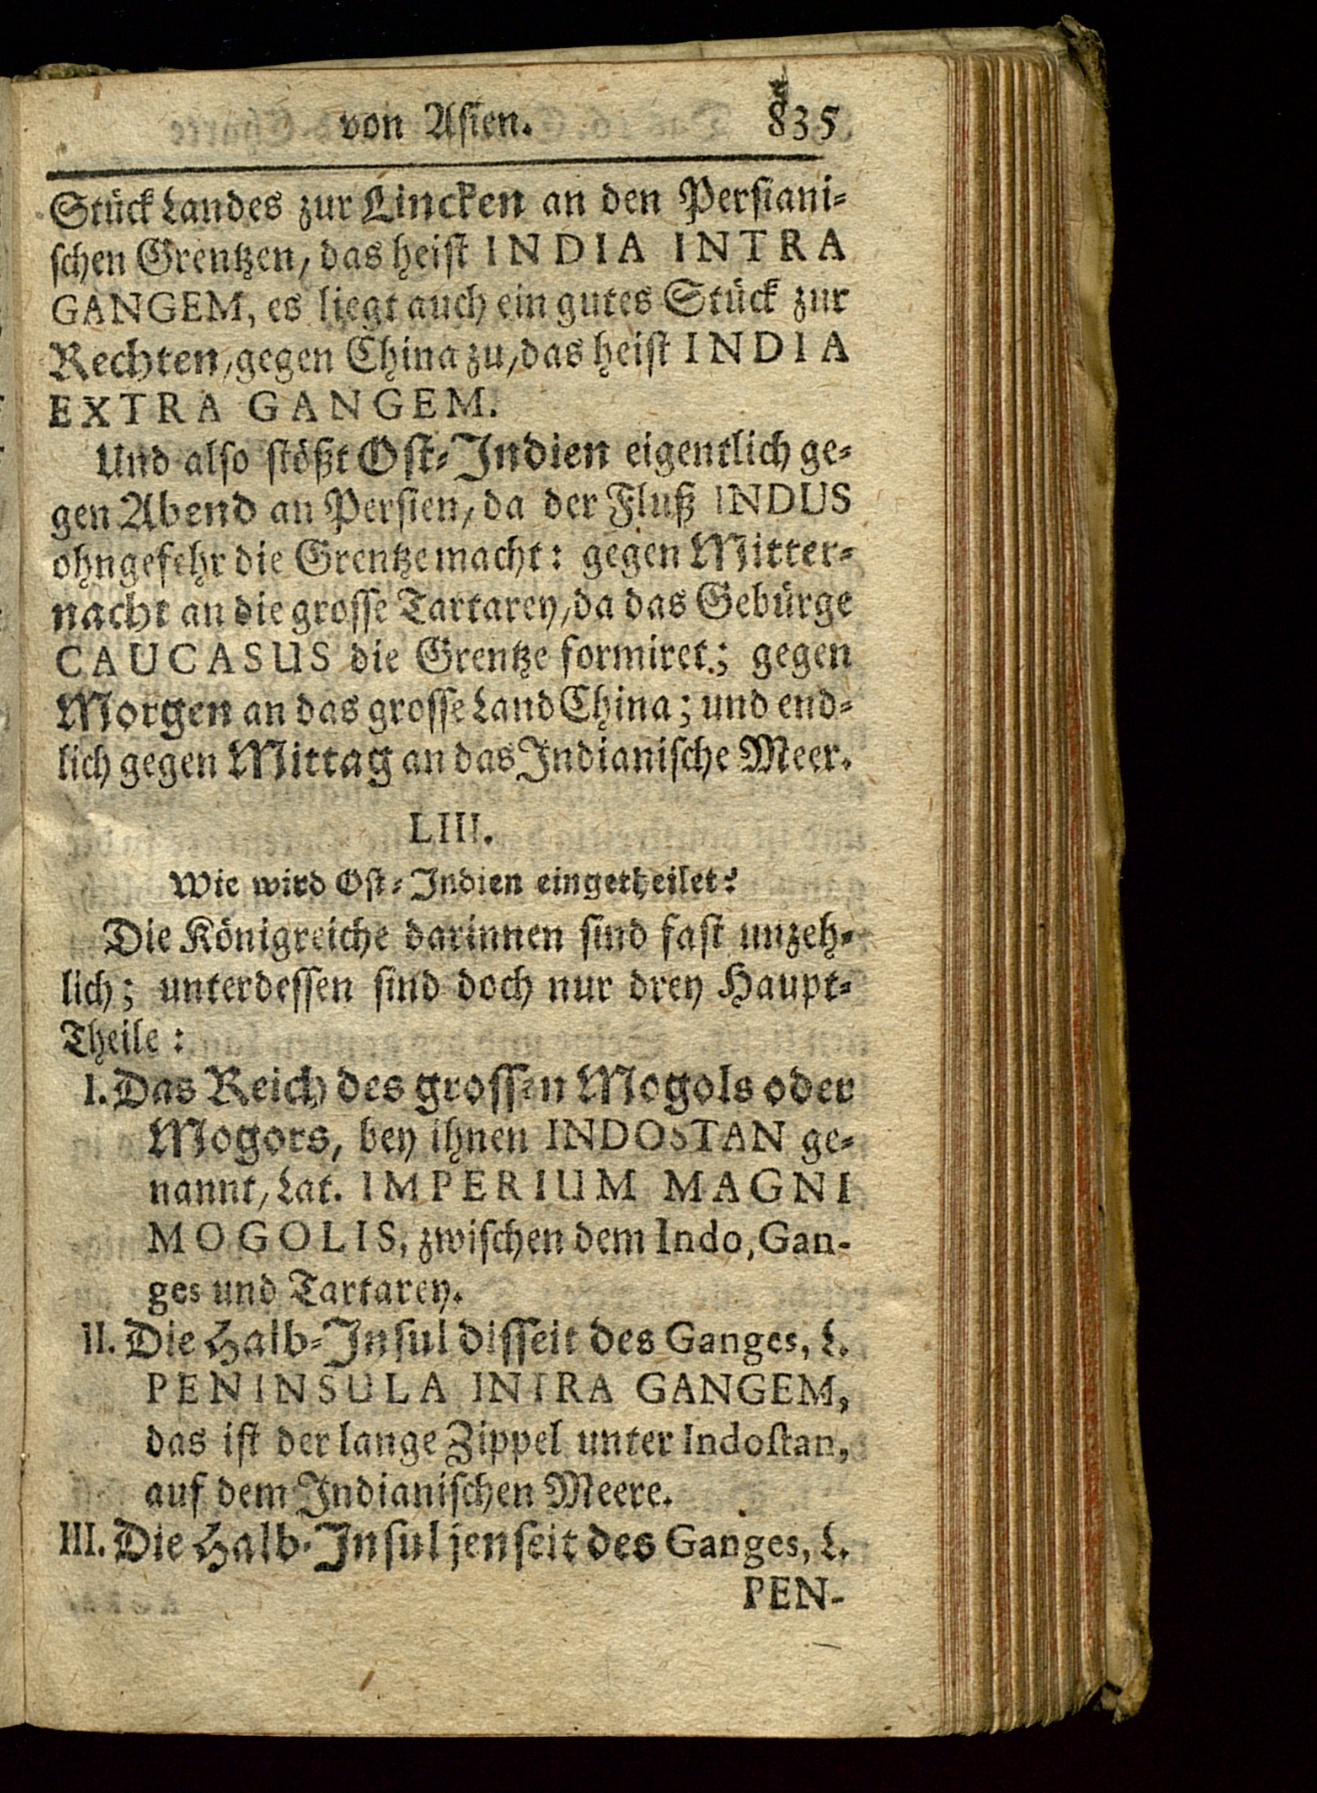 von Asien. 835
Stück Landes zur Lincken an den Persiani-
schen Grentzen, das heist INDIA INTRA
GANGEM, es liegt auch ein gutes Stück zur
Rechten, gegen China zu, das heist INDIA
EXTRA GANGEM.
Und also stößt Ost-Indien eigentlich ge-
gen Abend an Persien, da der Fluß INDUS
ohngefehr die Grentze macht: gegen Mitter-
nacht an die grosse Tartarey, da das Gebürge
CAUCASUS die Grentze formiret; gegen
Morgen an das grosse Land China; und end-
lich gegen Mittag an das Indianische Meer.
LIII.
Wie wird Ost-Indien eingetheilet?
Die Königreiche darinnen sind fast unzeh-
lich; unterdessen sind doch nur drey Haupt-
Theile:
I. Das Reich des grossen Mogols oder
Mogors, bey ihnen INDOSTAN ge-
nannt, Lat. IMPERIUM MAGNI
MOGOLIS, zwischen dem Indo, Gan-
ges und Tartarey.
II. Die Halb-Insul disseit des Ganges, L.
PENINSULA INTRA GANGEM,
das ist der lange Zippel unter Indostan,
auf dem Indianischen Meere.
III. Die Halb-Insul jenseit des Ganges, L.
PEN-